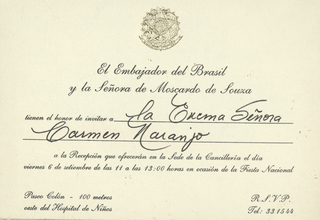 El Embajador del Brasil
y la Señora de Moscardo de Souza
tienen el honor de invitar a la Excma Señora
Carmen Naranjo
a la Recepción que ofrecerán en la Sede de la Cancillería el día
viernes 6 de setiembre de las 11 a las 13:00 horas en ocasión de la Fiesta Nacional
Paseo Colón - 100 metros
oeste del Hospital de Niños
R.S.V.P.
Tel: 331544